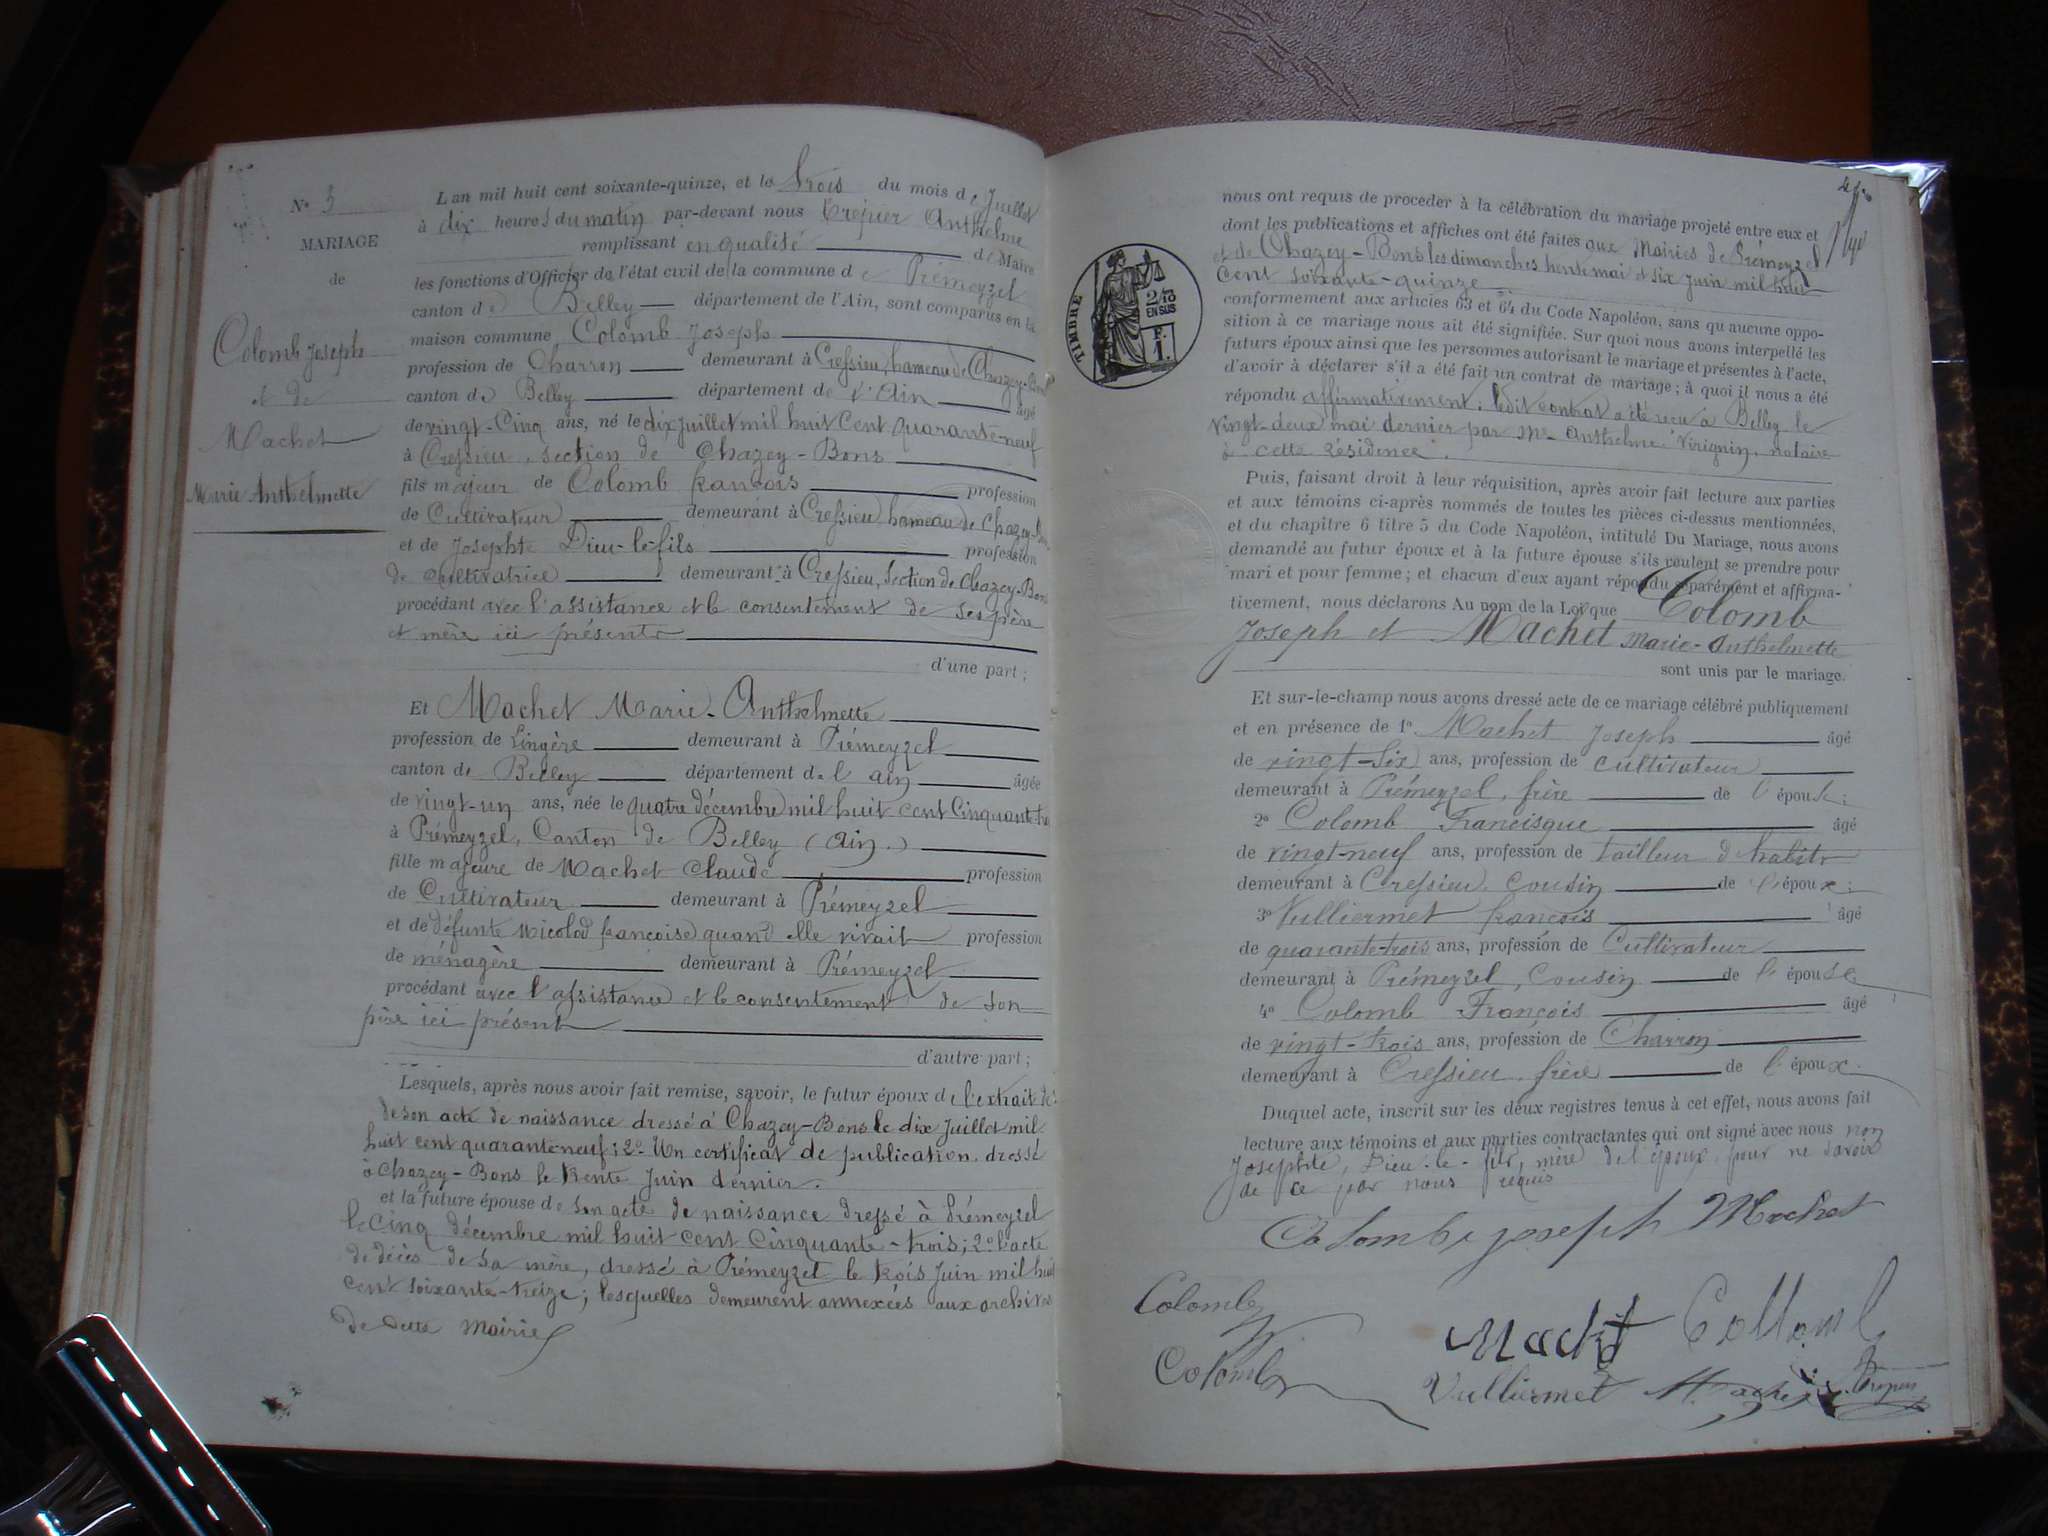 N° 3
MARIAGE
de
Colomb Joseph
et de
Machet
Marie Anthelmette
L'an mil huit cent soixante-quinze, et le trois du mois de Juillet
à dix heures du matin par-devant nous Trepier Anthelme
remplissant en qualité de Maire
les fonctions d'Officier de l'état civil de la commune de Prémeyzel
canton de Belley département de l'Ain, sont comparus en la
maison commune, Colomb Joseph
profession de Charron demeurant à Cressieu, hameau de Chazey-Bons
canton de Belley département de l'Ain âgé
de vingt-cinq ans, né le dix juillet mil huit cent quarante-neuf
à Cressieu, section de Chazey-Bons
fils majeur de Colomb françois profession
de Cultivateur demeurant à Cressieu hameau de Chazey-Bons
et de Josephte Dieu-le-fils profession
de cultivatrice demeurant à Cressieu, section de Chazey-Bons
procédant avec l'assistance et le consentement de ses père
et mère ici présents
d'une part;
Et Machet Marie-Anthelmette
profession de Lingère demeurant à Prémeyzel
canton de Belley département de l'ain âgée
de vingt-un ans, née le quatre décembre mil huit cent cinquante-trois
à Prémeyzel, Canton de Belley (Ain.)
fille majeure de Machet Claude profession
de Cultivateur demeurant à Prémeyzel
et de défunte Nicolod françoise quand elle vivait profession
de ménagère demeurant à Prémeyzel
procédant avec l'assistance et le consentement de son
père ici présent
d'autre part;
Lesquels, après nous avoir fait remise, savoir, le futur époux de l'extrait de
de son acte de naissance dressé à Chazey-Bons le dix Juillet mil
huit cent quarante neuf; 2° Un certificat de publication dressé
à Chazey-Bons le trente Juin dernier.
et la future épouse de son acte de naissance dressé à Prémeyzel
le cinq décembre mil huit cent cinquante-trois; 2° l'acte
de décès de sa mère, dressé à Prémeyzel le trois Juin mil huit
cent soixante-treize; lesquelles demeurent annexées aux archives
de cette Mairie
nous ont requis de procéder à la célébration du mariage projeté entre eux et
dont les publications et affiches ont été faites aux Mairies de Prémeyzel
et de Chazey-Bons les dimanches trente mai et six Juin mil huit
cent soixante-quinze
conformement aux articles 63 et 64 du Code Napoléon, sans qu'aucune oppo-
sition à ce mariage nous ait été signifiée. Sur quoi nous avons interpellé les
futurs époux ainsi que les personnes autorisant le mariage et présentes à l'acte,
d'avoir à déclarer s'il a été fait un contrat de mariage; à quoi il nous a été
répondu affirmativement; ledit contrat a été reçu à Belley le
vingt-deux mai dernier par Me Anthelme Virignin, notaire
à cette résidence.
TIMBRE
2/10
EN SUS
F.
1.
Puis, faisant droit à leur réquisition, après avoir fait lecture aux parties
et aux témoins ci-après nommés de toutes les pièces ci-dessus mentionnées,
et du chapitre 6 titre 5 du Code Napoléon, intitulé Du Mariage, nous avons
demandé au futur époux et à la future épouse s'ils veulent se prendre pour
mari et pour femme; et chacun d'eux ayant répondu séparément et affirma-
tivement, nous déclarons Au nom de la Loi que Colomb
Joseph et Machet Marie-Anthelmette
sont unis par le mariage.
Et sur-le-champ nous avons dressé acte de ce mariage célébré publiquement
et en présence de 1° Machet Joseph âgé
de vingt-six ans, profession de cultivateur
demeurant à Prémeyzel, frère de l'épouse;
2° Colomb Francisque âgé
de vingt-neuf ans, profession de tailleur d'habits
demeurant à Cressieu, cousin de l'époux;
3° Vulliermet françois âgé
de quarante-trois ans, profession de Cultivateur
demeurant à Prémeyzel, cousin de l'épouse
4° Colomb François âgé
de vingt-trois ans, profession de Charron
demeurant à Cressieu, frère de l'époux.
Duquel acte, inscrit sur les deux registres tenus à cet effet, nous avons fait
lecture aux témoins et aux parties contractantes qui ont signé avec nous non
Josephte, Dieu-le-fils, mère de l'époux, pour ne savoir
de ce par nous requis
Colomb joseph Machet
Colomb
Machet Collomb
Colomb
Vulliermet Machet Trepier